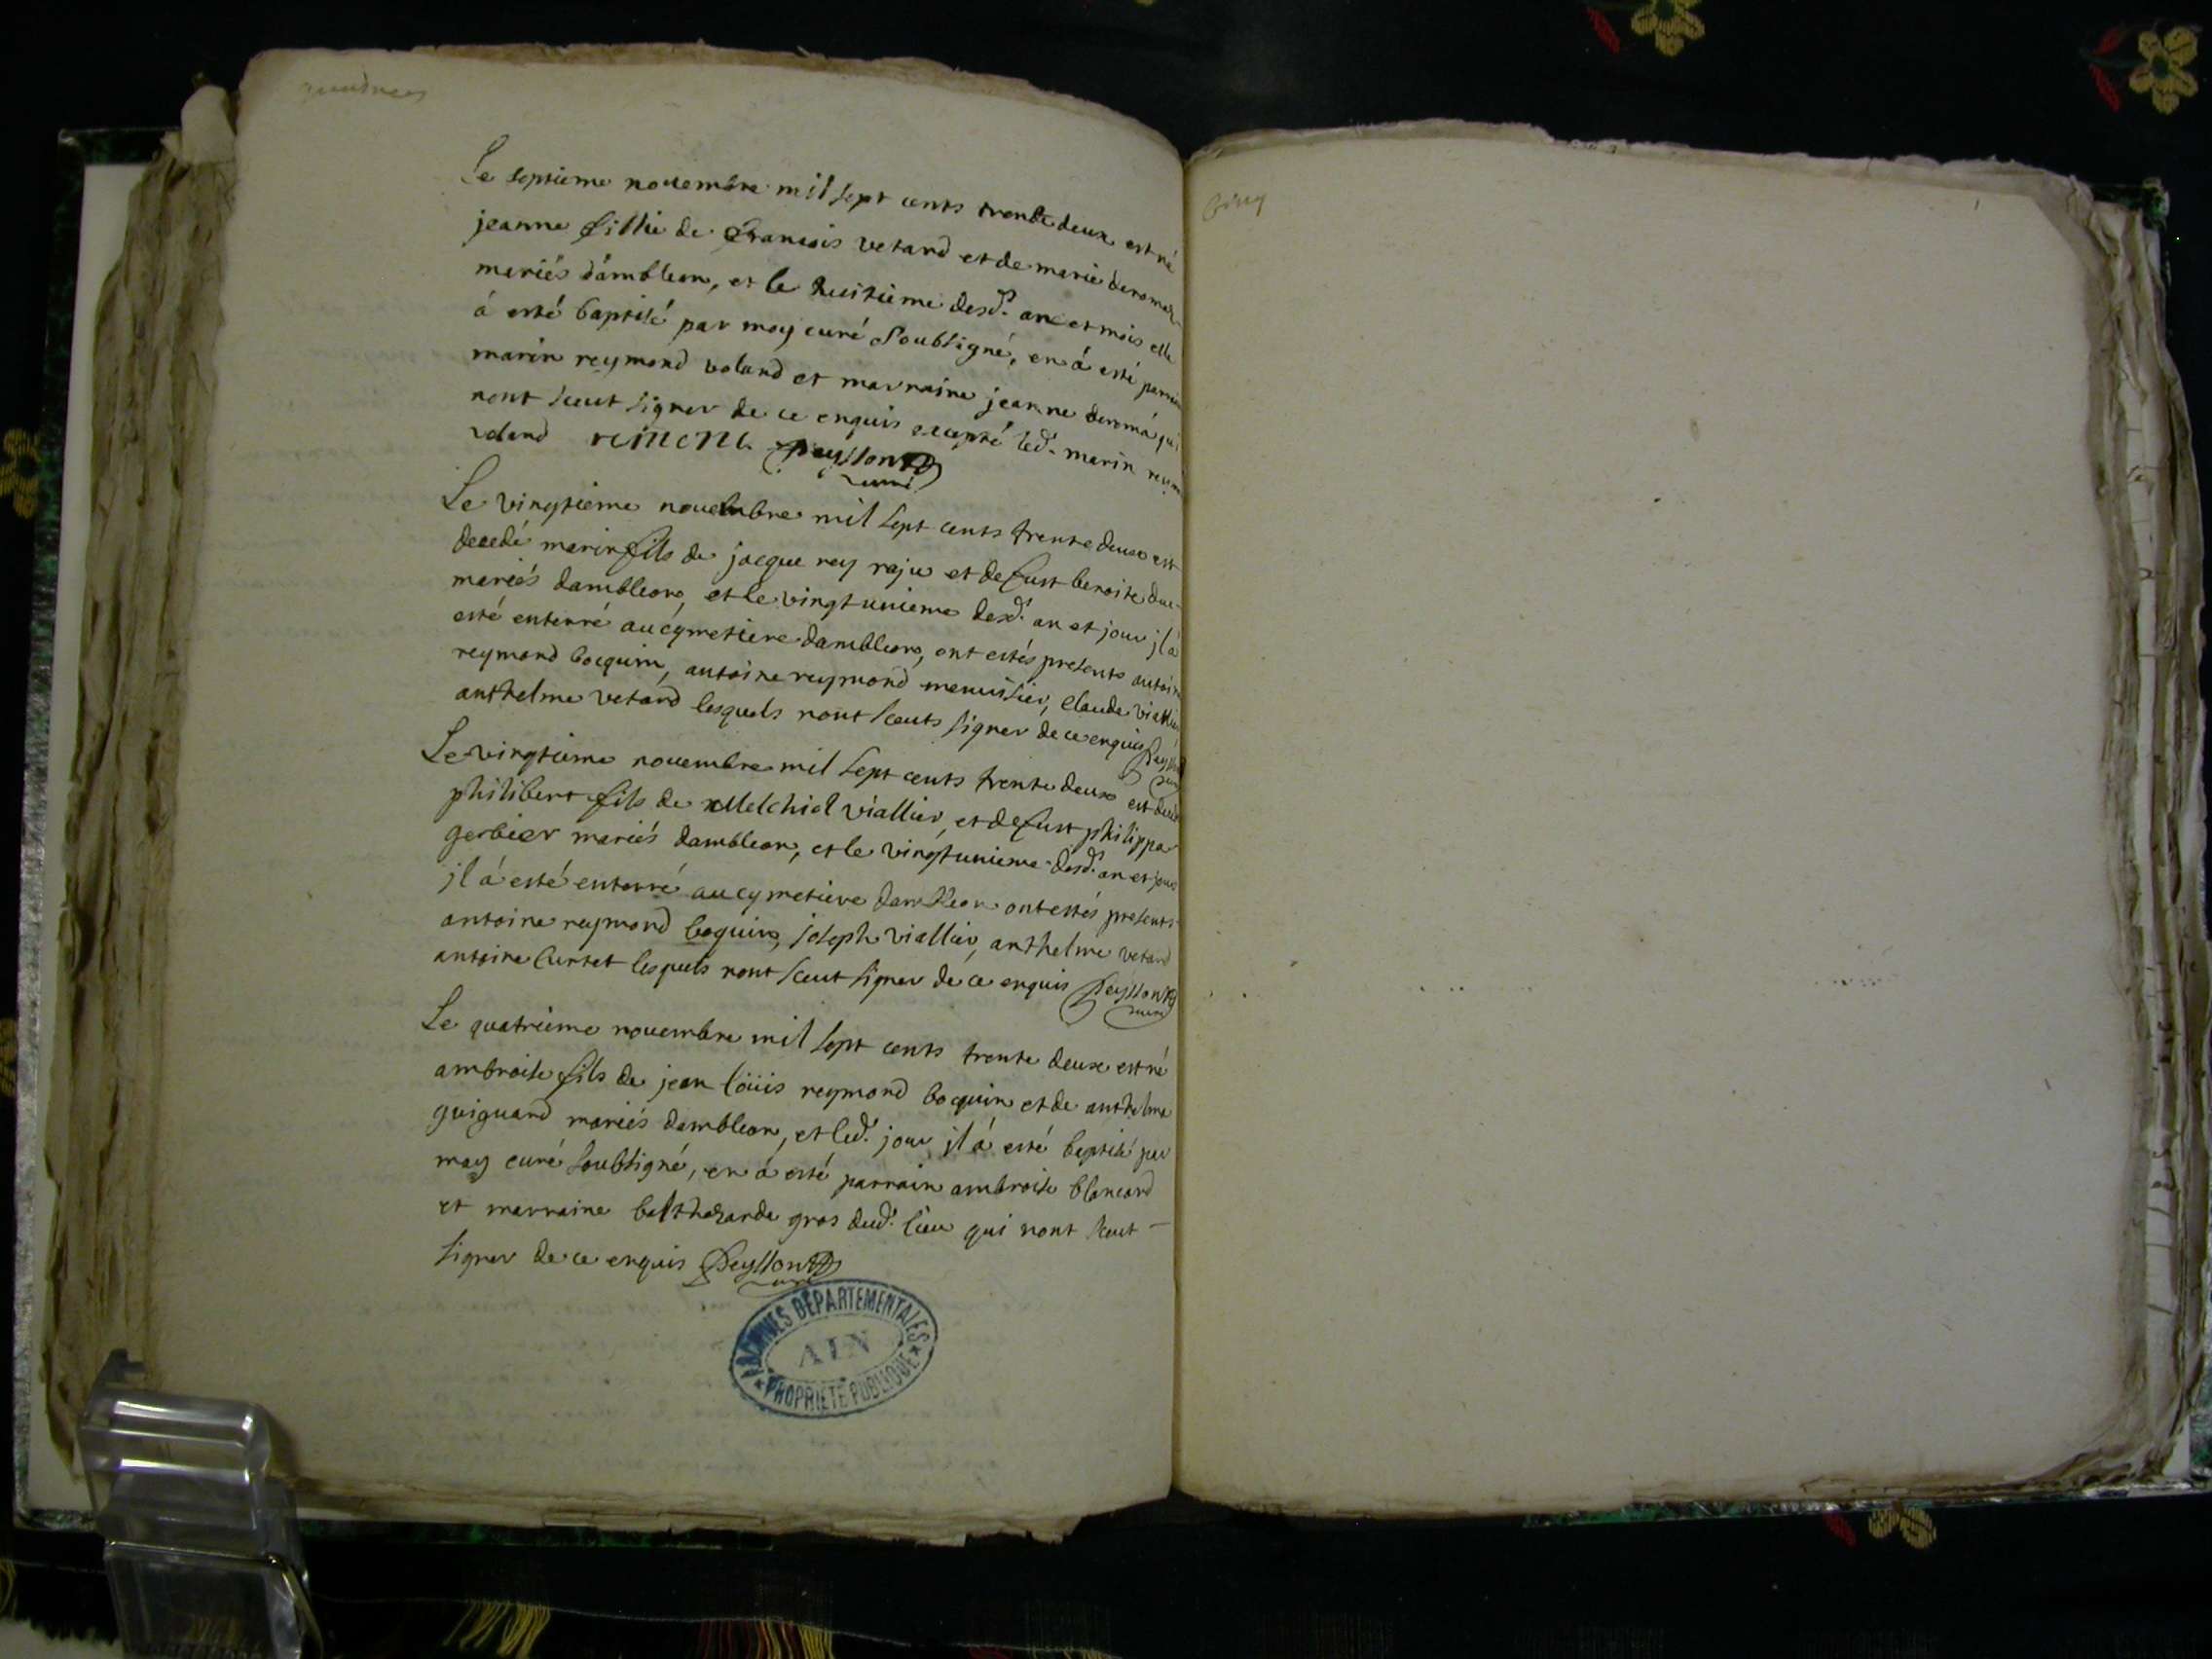 Le septieme novembre mil sept cents trente deux est né
jeanne fillie de francois vetard et de marie deromaz
mariés d'ambleon, et le huitieme desd. an et mois elle
á esté baptisé par moy curé soubsigné, en á esté parrain
marin reymond voland et marraine jeanne deroma qui
nont sceut signer de ce enquis excepté led. marin reym
voland remont Peysson
curé
Le vingtieme novembre mil sept cents trente deux est
decedé marin fils de jacque rey raju et defust benoite
mariés dambleon, et le vingtunieme desd. an et jour jl a
esté enterré au cymetiere dambleon, ont estés presents antoine
reymond bocquin, antoine reymond menuisier, claude viallier
anthelme vetard lesquels nont sceuts signer de ce enquis Peysson
curé
Le vingtieme novembre mil sept cents trente deux est decedé
philibert fils de Melchiol viallier, et defust philippa
gerbier mariés dambleon, et le vingtunieme desd. an et jour
jl á esté enterré au cymetiere dambleon ont estés presents
antoine reymond boquin, joseph viallier, anthelme vetard
antoine curtet lesquels nont sceut signer de ce enquis Peysson
curé
Le quatrieme novembre mil sept cents trente deux est né
ambroise fils de jean loüis reymond bocquin et de anthelma
guiguard mariés dambleon, et led. jour jl á esté baptisé par
moy curé soubsigné, en á esté parrain ambroise blancard
et marraine balthazarde gros dud. lieu qui nont sceut
signer de ce enquis Peysson
curé
ARCHIVES DÉPARTEMENTALES
AIN
PROPRIÉTÉ PUBLIQUE